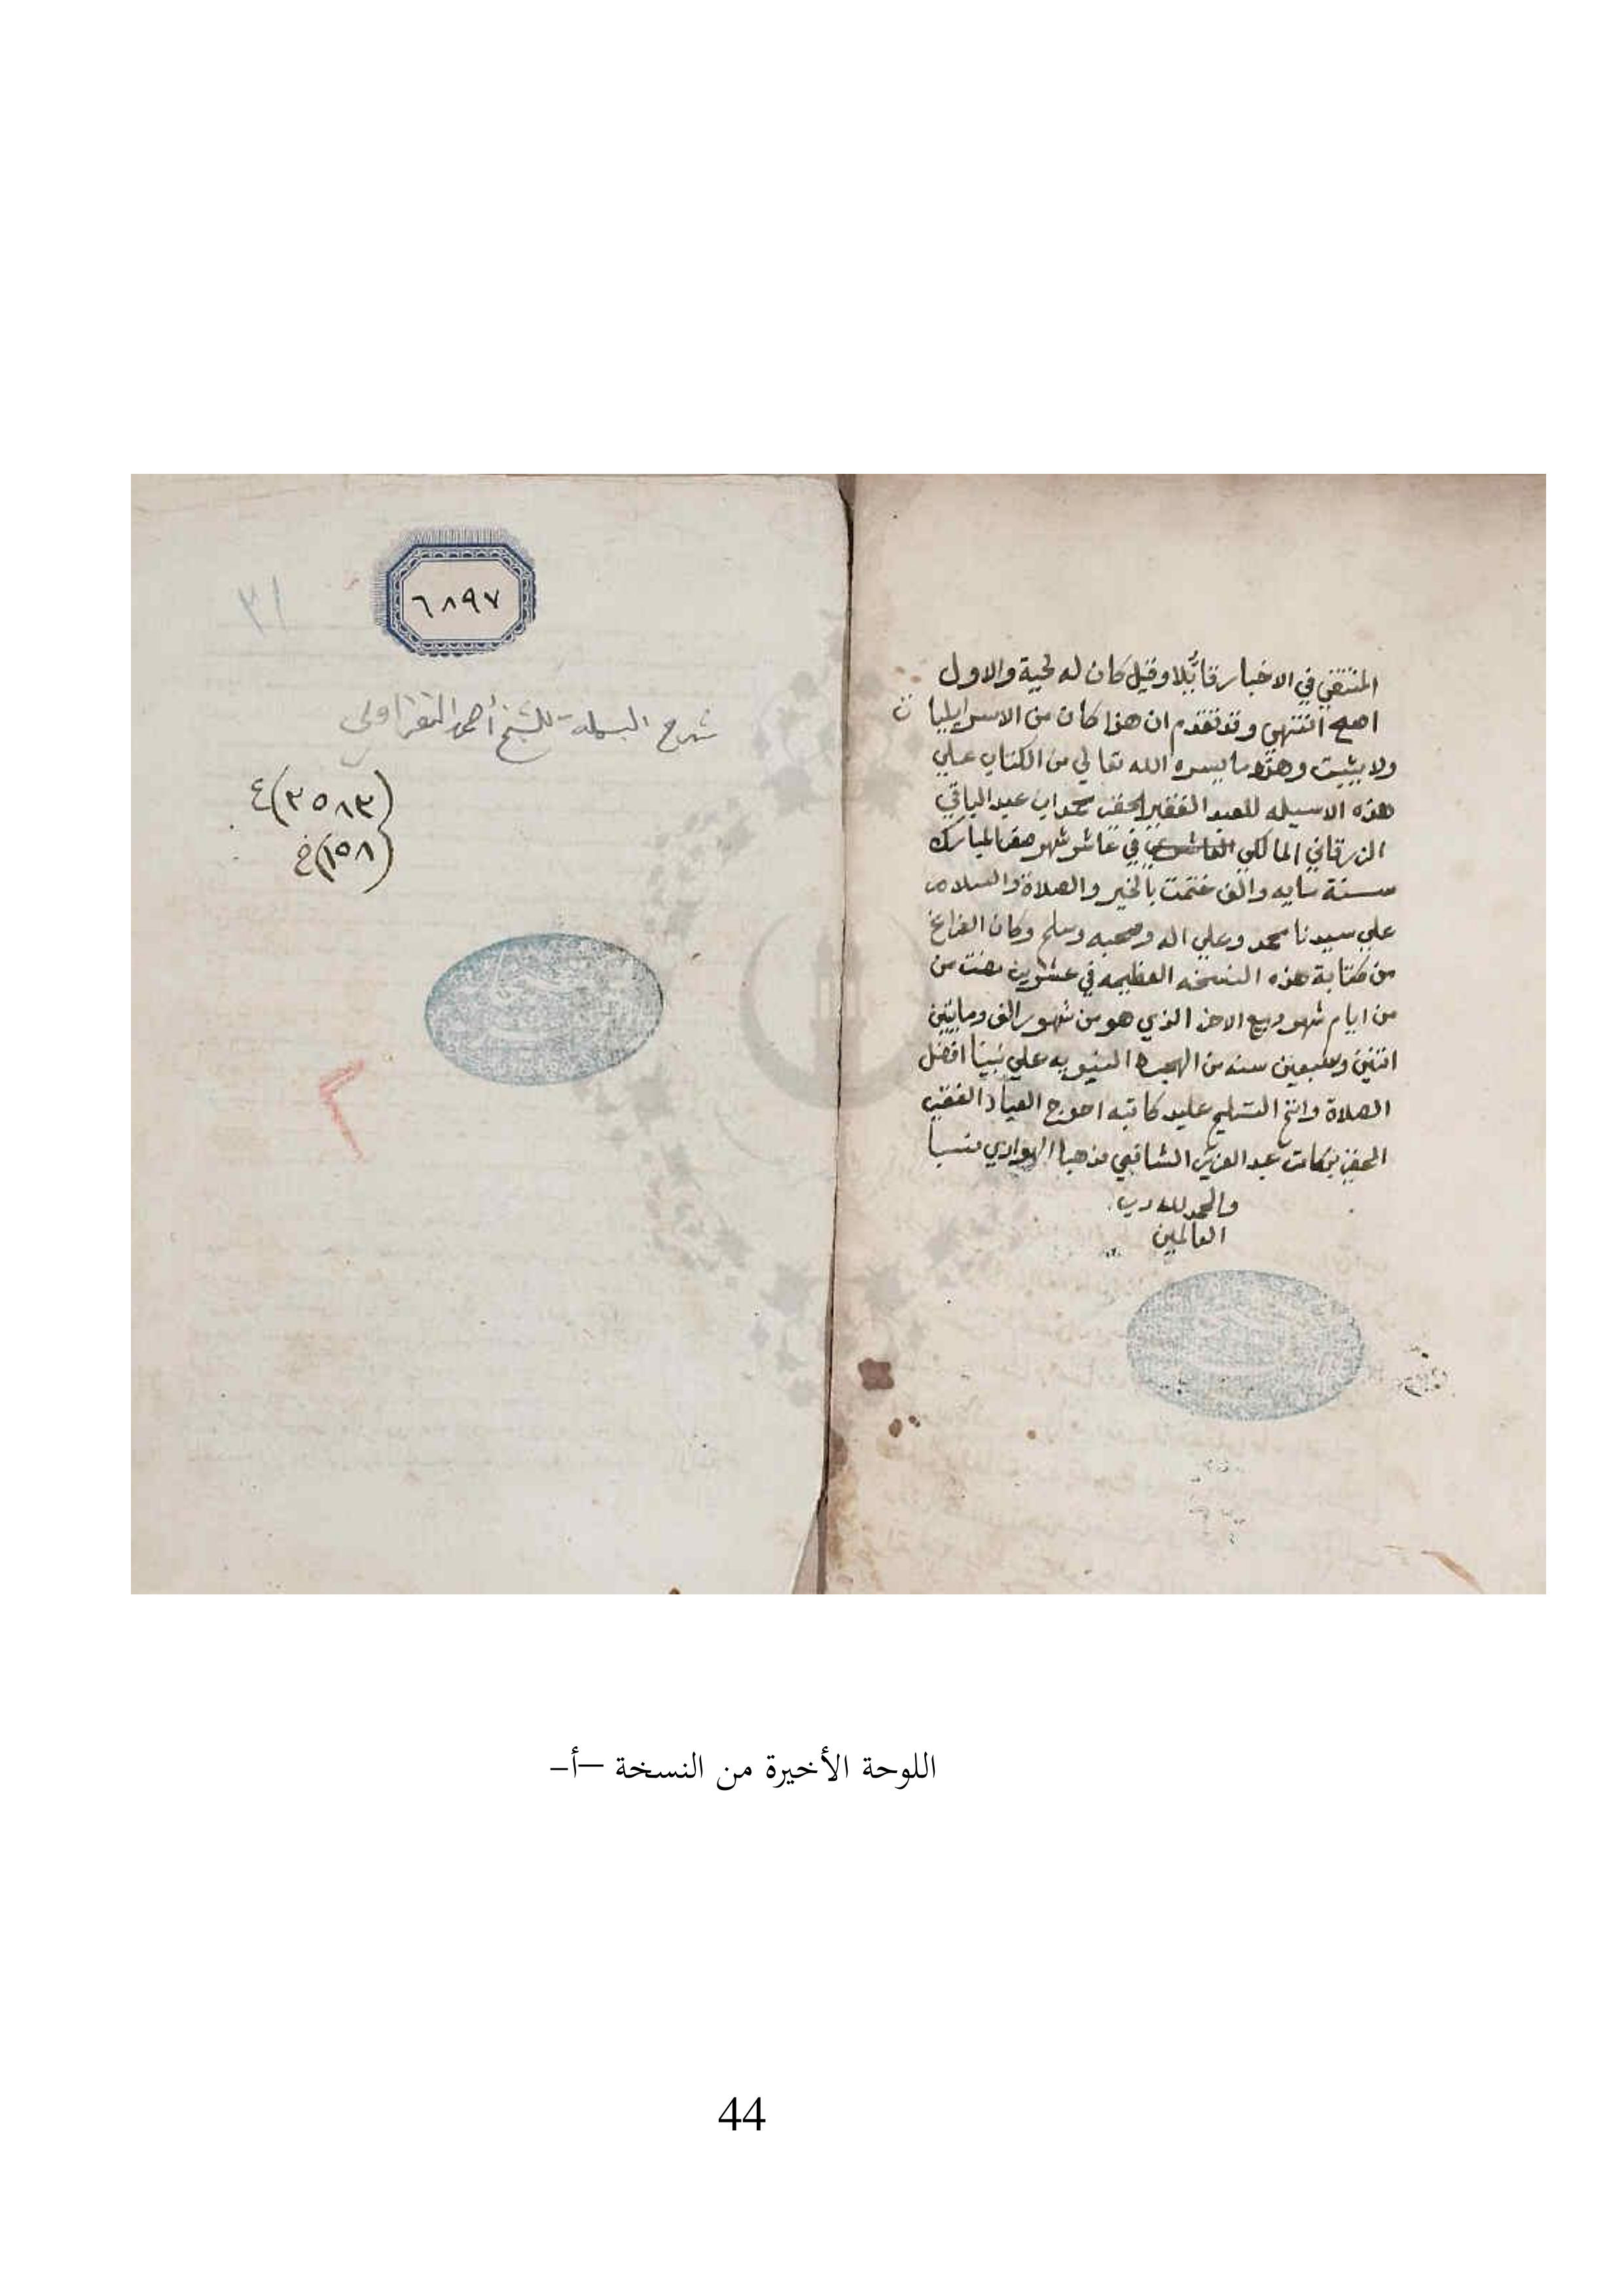 المنتقي في الاخبار قائلا وقيل كان له لحية والاول
اصح انتهي وقد تقدم ان هذا كان من الاسرايليات
ولا يثبت وهذا ما يسره الله تعالي من الكتاب علي
هذه الاسيله للعبد الفقير الحقير محمد ابن عبد الباقي
الزرقاني المالكي في عاشر شهر صفر المبارك
سنة مايه والف ختمت بالخير والصلاة والسلام
علي سيدنا محمد وعلي اله وصحبه وسلم وكان الفراغ
من كتابة هذه النسخه العظيمه في عشرين مضت من
من ايام شهر ربيع الاخر الذي هو من شهور الف ومايتين
اثنين وسبعين سنه من الهجره النبويه علي نبينا افضل
الصلاة واتم التسليم عليد كاتبه احوج العباد الفقير
الحقير بركات عبد العزيز الشافعي مذهبا الهوادي نسبا
والحمد لله رب
العالمين
٣١
٦٨٩٧
شرح البسملة للشيخ أحمد النفراوي
(٣٥٨٣) ع
(١٥٨) خ
اللوحة الأخيرة من النسخة –أ–
44